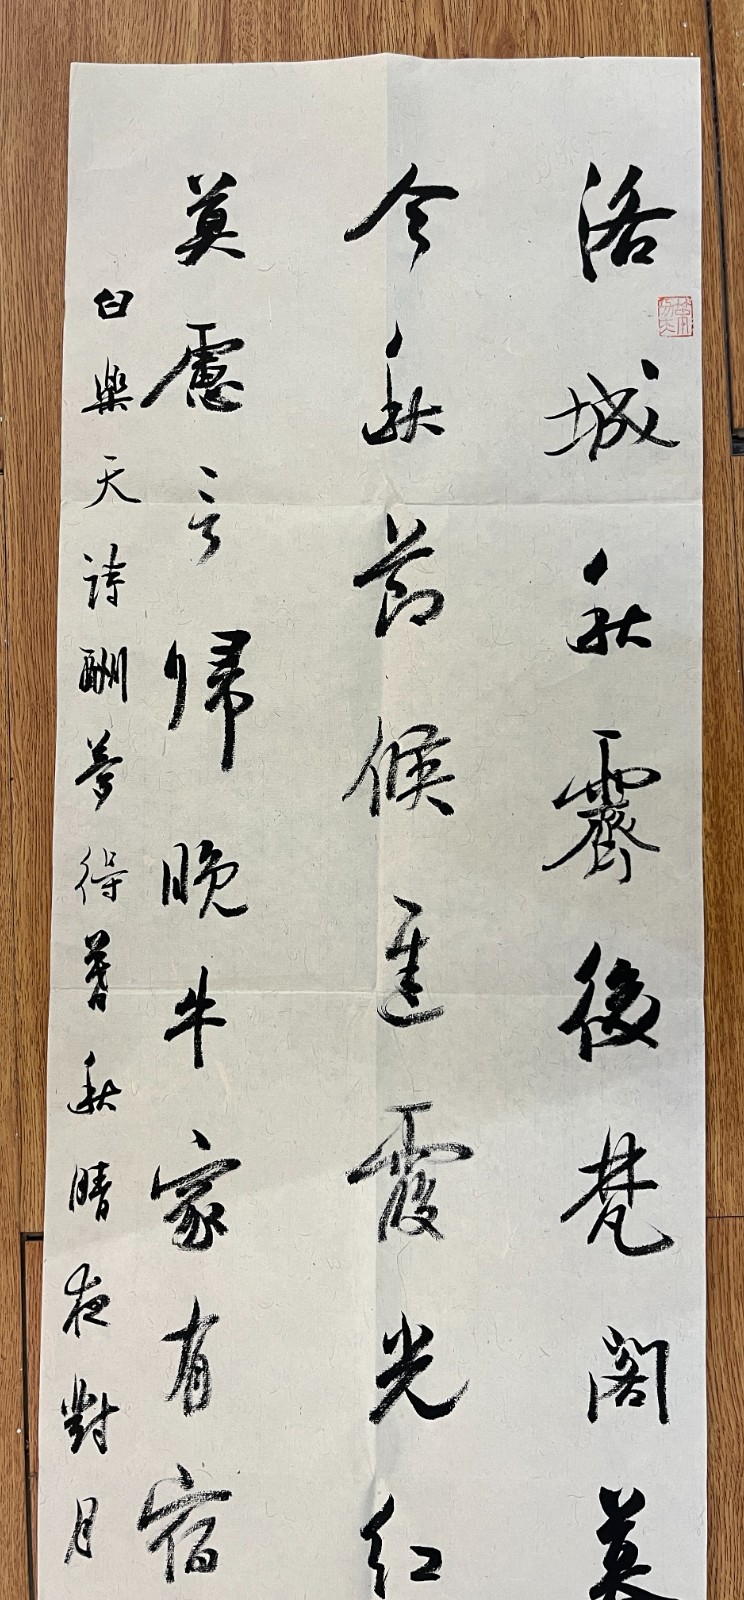 洛城秋霽後梵閣暮
今秋節候遲霞光紅
莫慮言帰晚牛家有宿
白樂天詩酬夢得暮秋晴夜對月